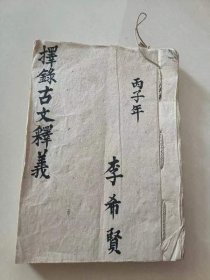 擇錄古文釋義
丙子年
李希賢